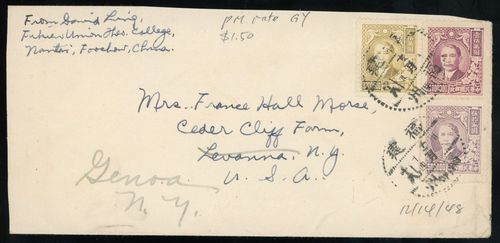 From David Ling,
Fukien Union Theo. College,
Nantai, Foochow, China.
pm rate GY
$1.50
Mrs. France Hall Morse,
Cedar Cliff Farm,
Levanna, N.Y.
U.S.A.
Genoa
N.Y.
12/14/48